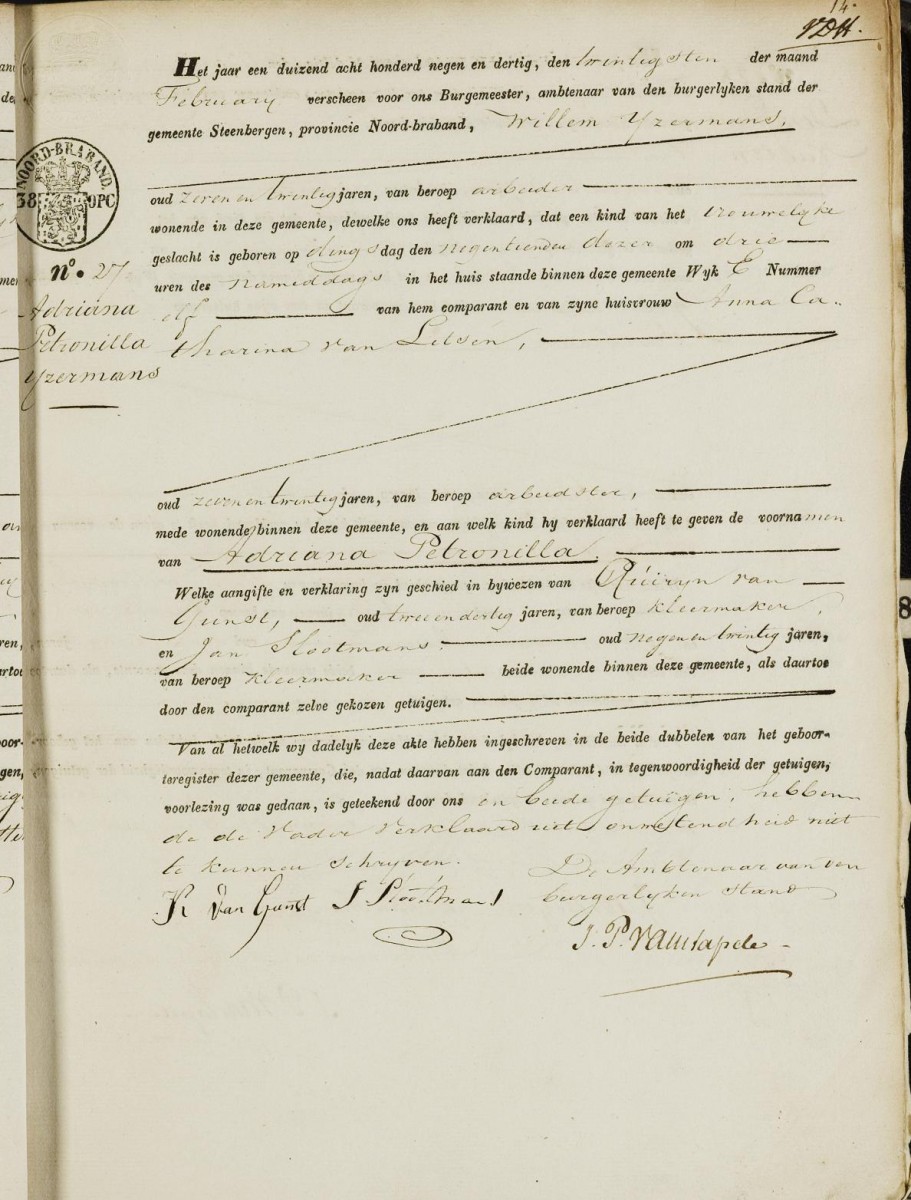 14.
VDH.
Het jaar een duizend acht honderd negen en dertig, den twintigsten der maand
February verscheen voor ons Burgemeester, ambtenaar van den burgerlyken stand der
gemeente Steenbergen, provincie Noord-braband, Willem Yzermans,
oud zeven en twintig jaren, van beroep arbeider
wonende in deze gemeente, dewelke ons heeft verklaard, dat een kind van het vrouwelyke
geslacht is geboren op dingsdag den negentienden dezer om drie
uren des nameddags in het huis staande binnen deze gemeente Wyk E Nummer
elf van hem comparant en van zyne huisvrouw Anna Ca-
tharina van
NOORD-BRABAND.
38 OPC
no. 27
Adriana
Petronilla
Yzermans
oud zeven en twintig jaren, van beroep arbeidster,
mede wonende binnen deze gemeente, en aan welk kind hy verklaard heeft te geven de voornamen
van Adriana Petronilla.
Welke aangifte en verklaring zyn geschied in bywezen van Quiryn van
Gunst, oud twee en dertig jaren, van beroep kleermaker,
en Jan Slootmans. oud negen en twintig jaren,
van beroep kleermaker beide wonende binnen deze gemeente, als daartoe
door den comparant zelve gekozen getuigen.
Van al hetwelk wy dadelyk deze akte hebben ingeschreven in de beide dubbelen van het geboor-
teregister dezer gemeente, die, nadat daarvan aan den Comparant, in tegenwoordigheid der getuigen,
voorlezing was gedaan, is geteekend door ons en beide getuigen, hebben
de de Vader verklaard uit niet
te kunnen schryven.
De Ambtenaar van den
burgerlyken stand
Van Gunst J Slootmans
J. P.